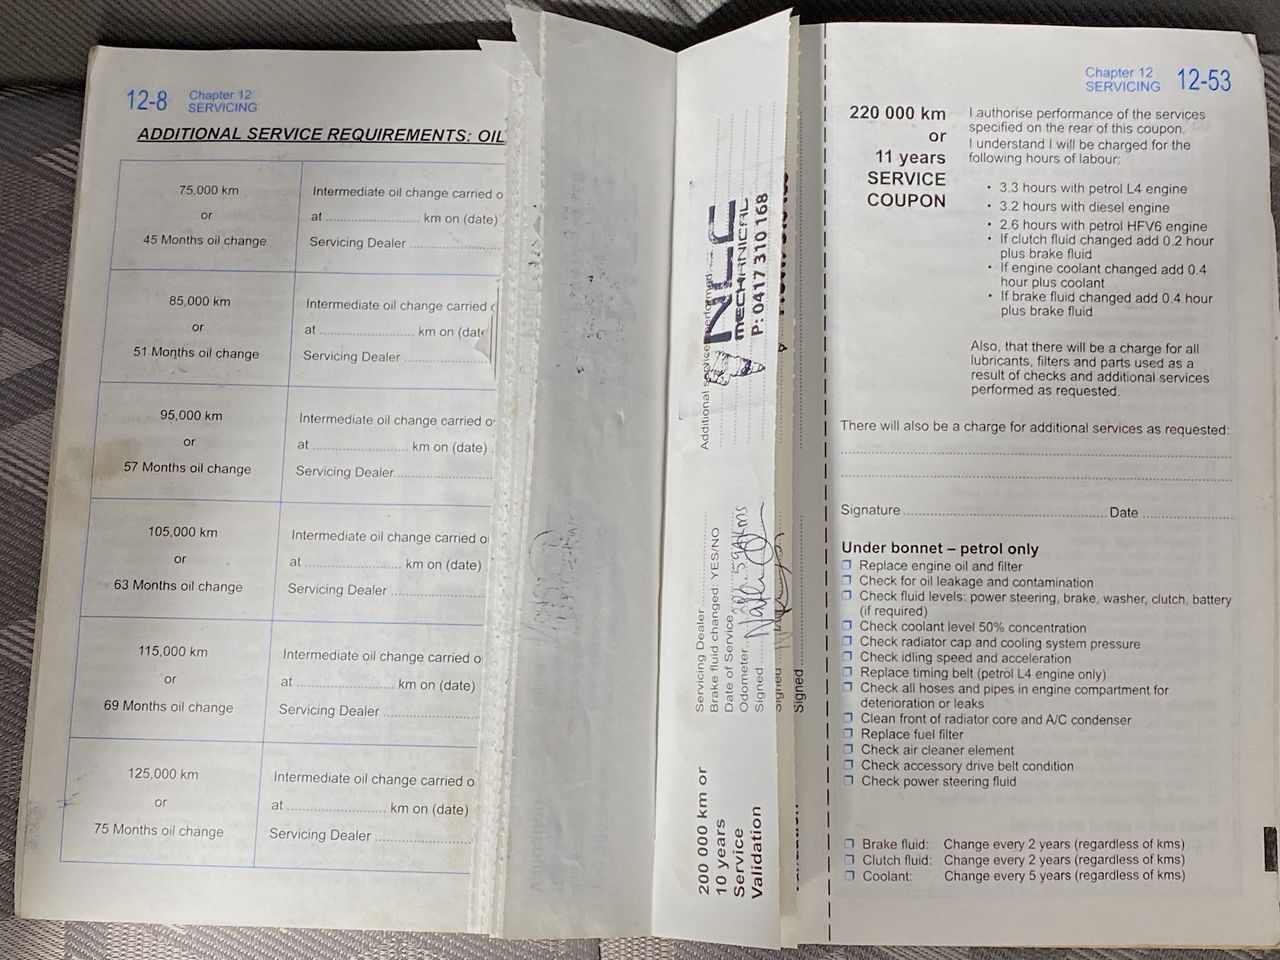 12-8 Chapter 12
SERVICING
ADDITIONAL SERVICE REQUIREMENTS: OIL
75,000 km
or
45 Months oil change
Intermediate oil change carried o
at .......... km on (date)
Servicing Dealer ..........
85,000 km
or
51 Months oil change
Intermediate oil change carried
at .......... km on (date
Servicing Dealer ..........
95,000 km
or
57 Months oil change
Intermediate oil change carried o
at .......... km on (date)
Servicing Dealer..........
105,000 km
or
63 Months oil change
Intermediate oil change carried o
at .......... km on (date)
Servicing Dealer ..........
115,000 km
or
69 Months oil change
Intermediate oil change carried o
at .......... km on (date)
Servicing Dealer ..........
125,000 km
or
75 Months oil change
Intermediate oil change carried o
at .......... km on (date)
Servicing Dealer ..........
200 000 km or
10 years
Service
Validation
Servicing Dealer ..........
Brake fluid changed: YES/NO
Date of Service
Odometer
Signed
Signed
Signed
Additional service performed
NLC
MECHANICAL
P: 0417 310 168
Chapter 12 12-53
SERVICING
220 000 km
or
11 years
SERVICE
COUPON
I authorise performance of the services
specified on the rear of this coupon.
I understand I will be charged for the
following hours of labour:
• 3.3 hours with petrol L4 engine
• 3.2 hours with diesel engine
• 2.6 hours with petrol HFV6 engine
• If clutch fluid changed add 0.2 hour
plus brake fluid
• If engine coolant changed add 0.4
hour plus coolant
• If brake fluid changed add 0.4 hour
plus brake fluid
Also, that there will be a charge for all
lubricants, filters and parts used as a
result of checks and additional services
performed as requested.
There will also be a charge for additional services as requested:
Signature .......... Date ..........
Under bonnet – petrol only
❒ Replace engine oil and filter
❒ Check for oil leakage and contamination
❒ Check fluid levels: power steering, brake, washer, clutch, battery
(if required)
❒ Check coolant level 50% concentration
❒ Check radiator cap and cooling system pressure
❒ Check idling speed and acceleration
❒ Replace timing belt (petrol L4 engine only)
❒ Check all hoses and pipes in engine compartment for
deterioration or leaks
❒ Clean front of radiator core and A/C condenser
❒ Replace fuel filter
❒ Check air cleaner element
❒ Check accessory drive belt condition
❒ Check power steering fluid
❒ Brake fluid: Change every 2 years (regardless of kms)
❒ Clutch fluid: Change every 2 years (regardless of kms)
❒ Coolant: Change every 5 years (regardless of kms)